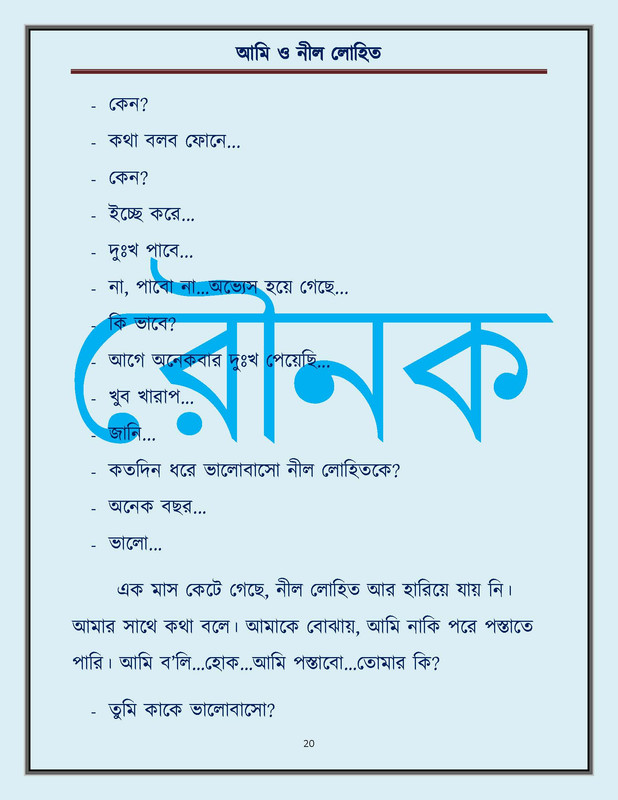 আমি ও নীল লোহিত
- কেন?
- কথা বলব ফোনে...
- কেন?
- ইচ্ছে করে...
- দুঃখ পাবে...
- না, পাবো না...অভ্যেস হয়ে গেছে...
- কি ভাবে?
- আগে অনেকবার দুঃখ পেয়েছি...
- খুব খারাপ...
- জানি...
- কতদিন ধরে ভালোবাসো নীল লোহিতকে?
- অনেক বছর...
- ভালো...
এক মাস কেটে গেছে, নীল লোহিত আর হারিয়ে যায় নি।
আমার সাথে কথা বলে। আমাকে বোঝায়, আমি নাকি পরে পস্তাতে
পারি। আমি ব’লি...হোক...আমি পস্তাবো...তোমার কি?
- তুমি কাকে ভালোবাসো?
20
রৌনক